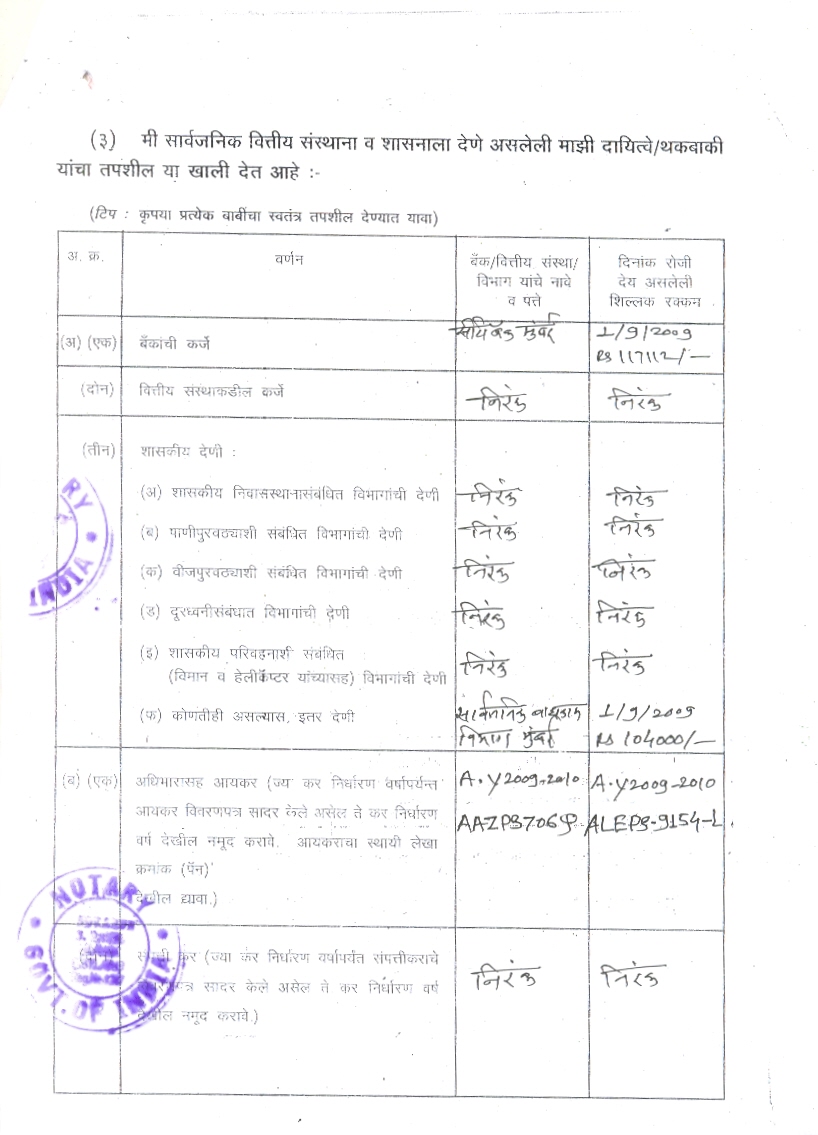 (३) मी सार्वजनिक वित्तीय संस्थाना व शासनाला देणे असलेली माझी दायित्वे/थकबाकी
यांचा तपशील या खाली देत आहे :-
(टिप : कृपया प्रत्येक बाबींचा स्वतंत्र तपशील देण्यात यावा)
अ. क्र. वर्णन बँक/वित्तीय संस्था/ दिनांक रोजी
विभाग यांचे नावे देय असलेली
व पत्ते शिल्लक रक्कन
(अ) (एक) बँकांची कर्जे मुंबई 1/9/2009
Rs 117112/-
(दोन) वित्तीय संस्थाकडील कर्जे निरंक निरंक
(तीन) शासकीय देणी :
(अ) शासकीय निवासस्थानासंबंधित विभागांची देणी निरंक निरंक
(ब) पाणीपुरवठ्याशी संबंधित विभागांची देणी निरंक निरंक
(क) वीजपुरवठ्याशी संबंधित विभागांची देणी निरंक निरंक
(ड) दूरध्वनीसंबंधात विभागांची देणी निरंक निरंक
(इ) शासकीय परिवहनाशी संबंधित
(विमान व हेलीकॅप्टर यांच्यासह) विभागांची देणी निरंक निरंक
(फ) कोणतीही असल्यास, इतर देणी सार्वजनिक बांधकाम 1/9/2009
विभाग मुंबई Rs 104000/-
(ब) (एक) अधिभारासह आयकर (ज्या कर निर्धारण वर्षापर्यन्त A.Y2009-2010 A.Y2009-2010
आयकर विवरणपत्र सादर केले असेल ते कर निर्धारण
वर्ष देखील नमूद करावे. आयकराचा स्थायी लेखा
क्रमांक (पॅन)
देखील द्यावा.)
कर (ज्या कर निर्धारण वर्षापर्यंत संपत्तीकराचे
सादर केले असेल ते कर निर्धारण वर्ष निरंक निरंक
देखील नमूद करावे.)
NOTARY
GOVT. OF INDIA
INDIA